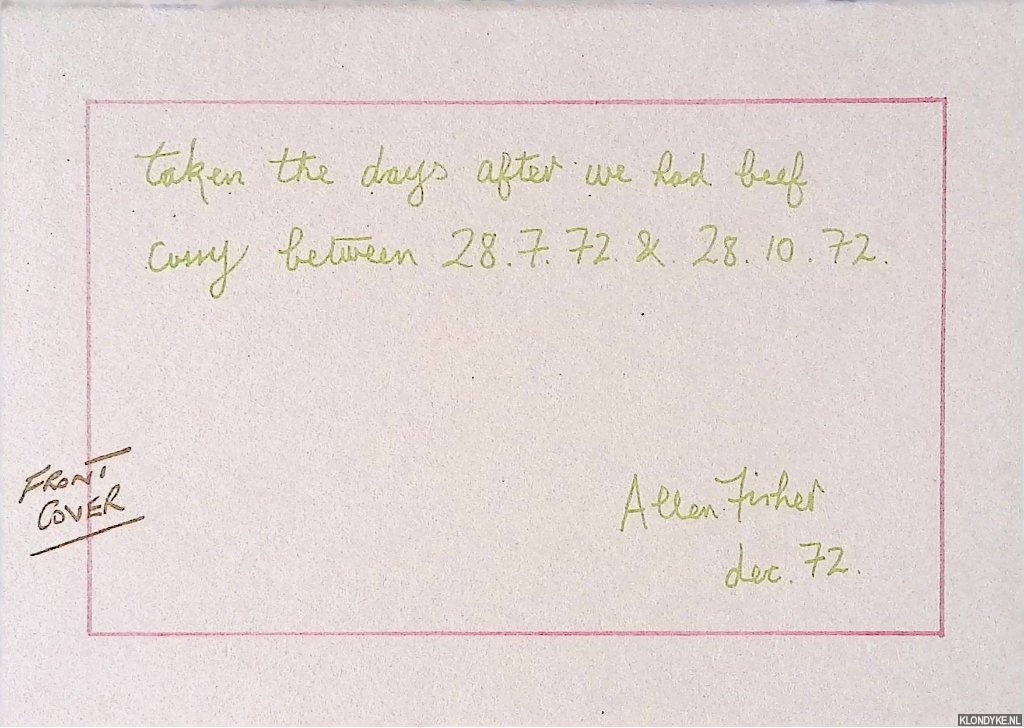 taken the days after we had beef
curry between 28.7.72 & 28.10.72.
FRONT
COVER
Allen Fisher
dec. 72.
KLONDYKE.NL